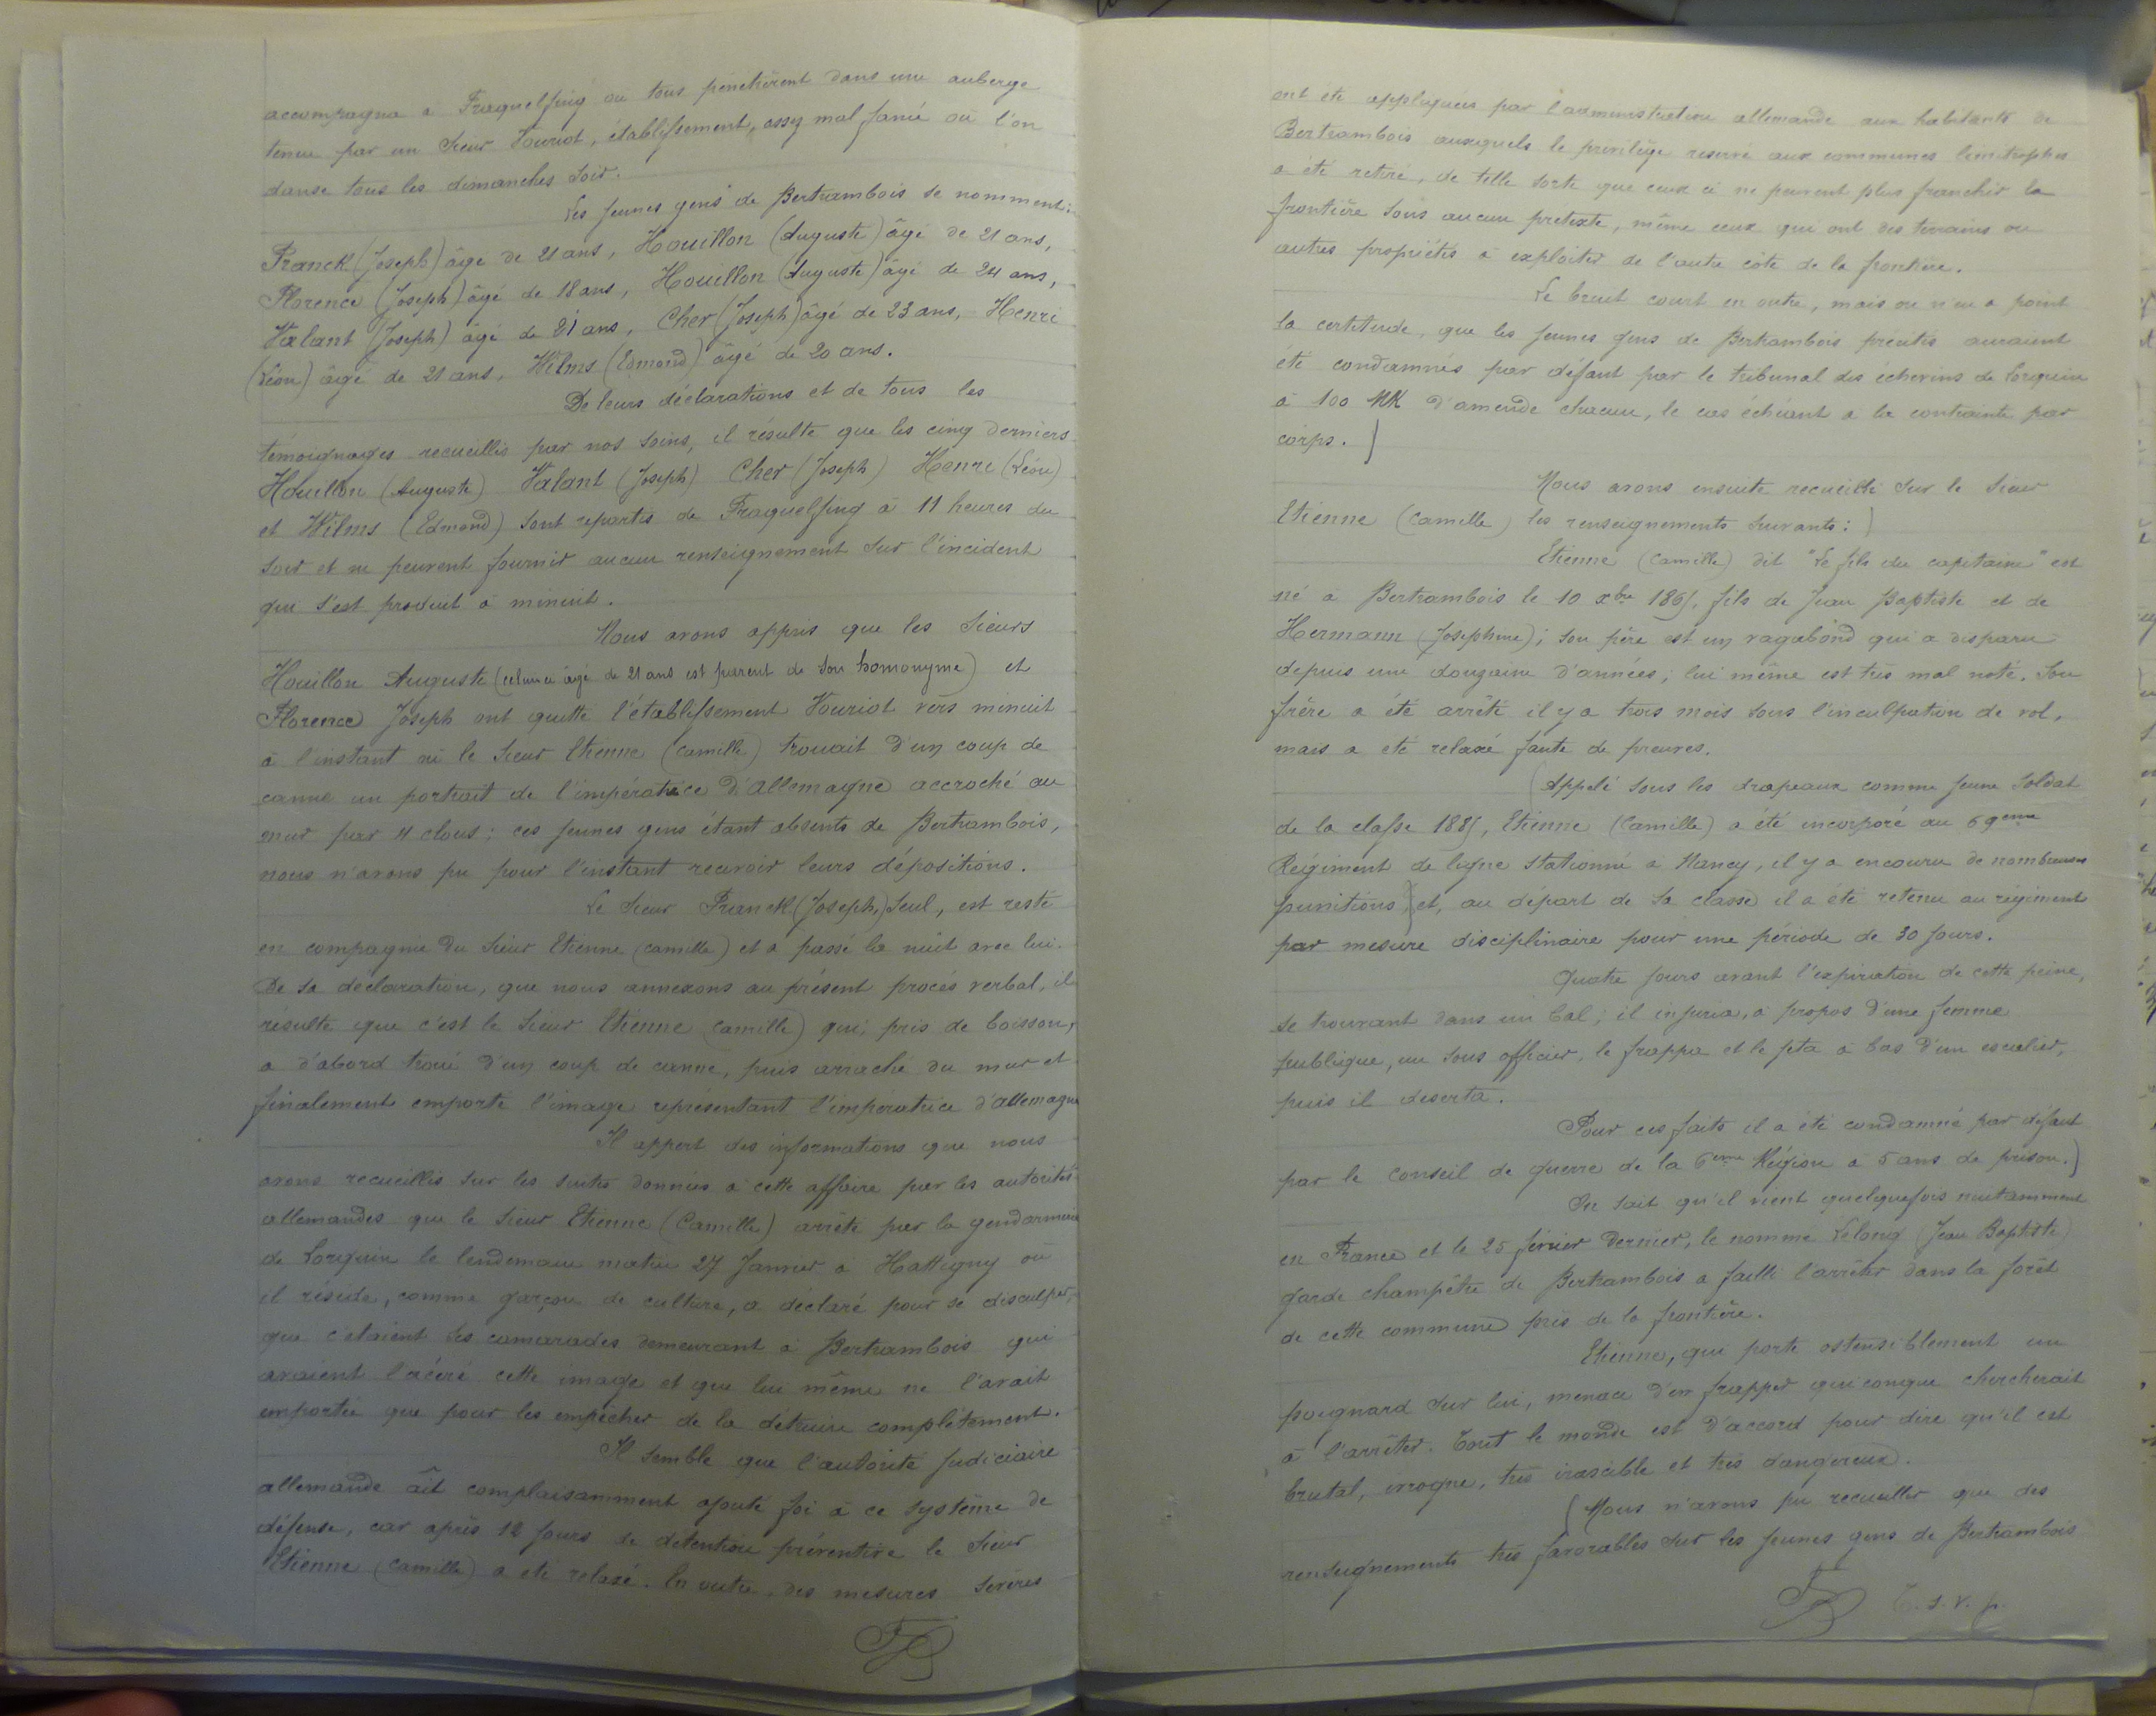 accompagna à Fraquelfing où tous pénétrèrent dans une auberge
tenue par un sieur Vouriot, établissement, assez mal famé où l'on
danse tous les dimanches soir.
Les jeunes gens de Bertrambois se nomment:
Franck (Joseph) âgé de 21 ans, Houillon (Auguste) âgé de 21 ans,
Florence (Joseph) âgé de 18 ans, Houillon (Auguste) âgé de 24 ans,
Valant (Joseph) âgé de 21 ans, Cher (Joseph) âgé de 23 ans, Henri
(Léon) âgé de 21 ans, Wilms (Edmond) âgé de 20 ans.
De leurs déclarations et de tous les
témoignages recueillis par nos soins, il résulte que les cinq derniers
Houillon (Auguste) Valant (Joseph) Cher (Joseph) Henri (Léon)
et Wilms (Edmond) sont repartis de Fraquelfing à 11 heures du
soir et ne peuvent fournir aucun renseignement sur l'incident
qui s'est produit à minuit.
Nous avons appris que les sieurs
Houillon Auguste (celui ci âgé de 21 ans est parent de son homonyme) et
Florence Joseph ont quitté l'établissement Vouriot vers minuit
à l'instant où le sieur Etienne (Camille) trouait d'un coup de
canne un portrait de l'impératrice d'Allemagne accroché au
mur par 4 clous; ces jeunes gens étant absents de Bertrambois,
nous n'avons pu pour l'instant recevoir leurs dépositions.
Le sieur Franck (Joseph,) seul, est resté
en compagnie du sieur Etienne (Camille) et a passé la nuit avec lui.
De sa déclaration, que nous annexons au présent procès verbal, il
résulte que c'est le sieur Etienne (Camille) qui, pris de boisson,
a d'abord troué d'un coup de canne, puis arraché du mur et
finalement emporté l'image représentant l'impératrice d'Allemagne
Il appert des informations que nous
avons recueillis sur les suites données à cette affaire par les autorités
allemandes que le sieur Etienne (Camille) arrêté par la gendarmerie
de Lorquin le lendemain matin 27 Janvier à Hattigny où
il réside, comme garçon de culture, a déclaré pour se disculper,
que c'étaient ses camarades demeurant à Bertrambois qui
avaient lacéré cette image et que lui même ne l'avait
emportée que pour les empêcher de la détruire complètement.
Il semble que l'autorité judiciaire
allemande ait complaisamment ajouté foi à ce système de
défense, car après 12 jours de détention préventive le sieur
Etienne (Camille) a été relaxé. En outre, des mesures sévères
ont été appliquées par l'administration allemande aux habitants de
Bertrambois auxquels le privilège réservé aux communes limitrophes
a été retiré, de telle sorte que ceux ci ne peuvent plus franchir la
frontière sous aucun prétexte, même ceux qui ont des terrains ou
autres propriétés à exploiter de l'autre côté de la frontière.
Le bruit court en outre, mais on n'en a point
la certitude, que les jeunes gens de Bertrambois précités auraient
été condamnés par défaut par le tribunal des échevins de Lorquin
à 100 MK d'amende chacun, le cas échéant à la contrainte par
corps.)
Nous avons ensuite recueilli sur le sieur
Etienne (Camille) les renseignements suivants:)
Etienne (Camille) dit "Le fils du capitaine" est
né à Bertrambois le 10 xbre 1865, fils de Jean Baptiste et de
Hermann (Joséphine); son père est un vagabond qui a disparu
depuis une douzaine d'années, lui même est très mal noté. Son
frère a été arrêté il y a trois mois sous l'inculpation de vol,
mais a été relaxé faute de preuves.
(Appelé sous les drapeaux comme jeune soldat
de la classe 1885, Etienne (Camille) a été incorporé au 69eme
Régiment de ligne stationné à Nancy, il y a encouru de nombreuses
punitions) et, au départ de sa classe il a été retenu au régiment
par mesure disciplinaire pour une période de 30 jours.
Quatre jours avant l'expiration de cette peine,
se trouvant dans un bal; il injuria, à propos d'une femme
publique, un sous officier, le frappa et le jeta à bas d'un escalier,
puis il déserta.
Pour ces faits il a été condamné par défaut
par le conseil de guerre de la 6eme Région à 5 ans de prison.)
On sait qu'il vient quelquefois nuitamment
en France et le 25 février dernier, le nommé Lelong (Jean Baptiste)
garde champêtre de Bertrambois a failli l'arrêter dans la forêt
de cette commune près de la frontière.
Etienne, qui porte ostensiblement un
poignard sur lui, menace d'en frapper quiconque chercherait
à l'arrêter. Tout le monde est d'accord pour dire qu'il est
brutal, ivrogne, très irascible et très dangereux.
(Nous n'avons pu recueillir que des
renseignements très favorables sur les jeunes gens de Bertrambois
T. s. v. p.